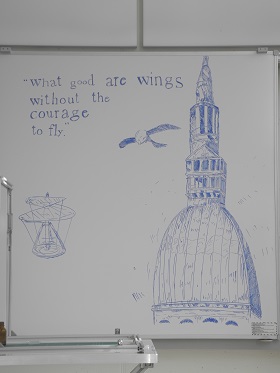 "what good are wings
without the
courage
to fly."